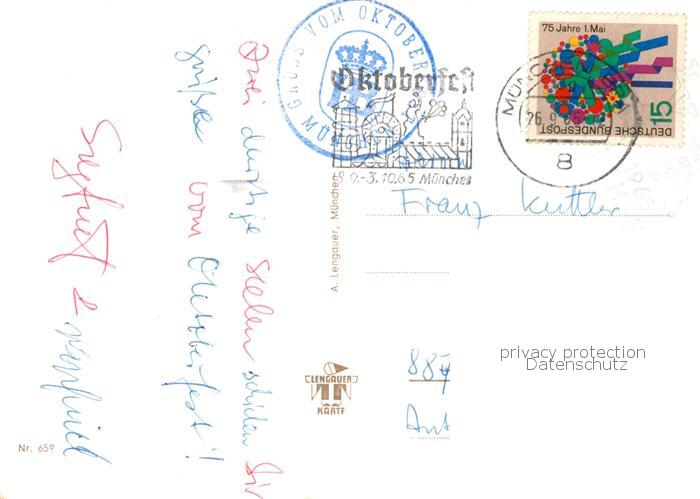 GRUSS VOM OKTOBERFEST
MÜNCHEN
Oktoberfest
18.9.-3.10.65 München
MÜNCHEN
26.9.65
8
75 Jahre 1. Mai
DEUTSCHE BUNDESPOST
15
Zwei durstige Seelen schicken Dir
Grüße vom Oktoberfest!
Siegfried &
Franz Kuttler
A. Lengauer, München
LENGAUER
KARTE
privacy protection
Datenschutz
Nr. 659